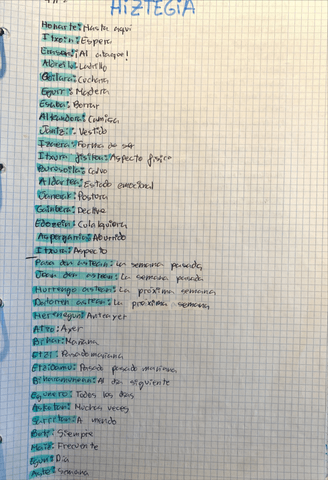 HIZTEGIA
Honarte: Hasta aquí
Itxoin: Espera
Erasoan: Al ataque!
Adreilu: Ladrillo
Goilara: Cuchara
Egurr: Madera
Esaba: Borrar
Alkandora: Camisa
Jantzi: Vestido
Izaera: Forma de ser
Itxura fisikoa: Aspecto fisico
Burusoila: Calvo
Aldartea: Estado emocional
Jarrerak: Postura
Gainbera: Declive
Edozein: Cualquiera
Aspergarria: Aburrido
Itxura: Aspecto
Pasa den astean: La semana pasada
Joan den astean: La semana pasada
Hurrengo astean: La próxima semana
Datorren astean: La próxima semana
Herenegun: Anteayer
Atzo: Ayer
Bihar: Mañana
Etzi: Pasado mañana
Etzidamu: Pasado pasado mañana
Biharamunean: Al día siguiente
Egunero: Todos los días
Askotan: Muchas veces
Sarritan: A menudo
Beti: Siempre
Maiz: Frecuente
Egun: Día
Aste: Semana